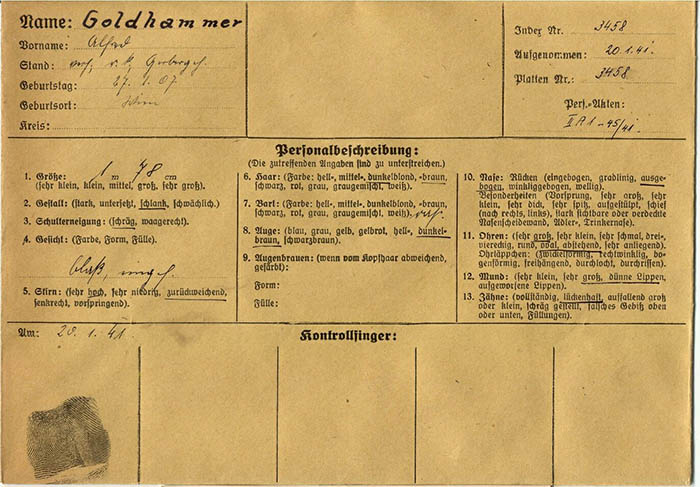 Name: Goldhammer
Vorname: Alfred
Stand: verh.
Geburtstag: 27. 1. 07
Geburtsort: Wien
Kreis:
Index Nr. 3458
Aufgenommen: 20.1.41.
Platten Nr.: 3458
Pers.-Akten:
II A1 - 45/41.
Personalbeschreibung:
(Die zutreffenden Angaben sind zu unterstreichen.)
1. Größe: 1 m 78 cm
(sehr klein, klein, mittel, groß, sehr groß).
2. Gestalt: (stark, untersetzt, schlank, schwächlich.)
3. Schulterneigung: (schräg, waagerecht).
4. Gesicht: (Farbe, Form, Fülle).
blaß,
5. Stirn: (sehr hoch, sehr niedrig, zurückweichend,
senkrecht, vorspringend).
6. Haar: (Farbe: hell-, mittel-, dunkelblond, -braun,
schwarz, rot, grau, graugemischt, weiß).
7. Bart: (Farbe: hell-, mittel-, dunkelblond, -braun,
schwarz, rot, grau, graugemischt, weiß). ras.
8. Auge: (blau, grau, gelb, gelbrot, hell-, dunkel-
braun, schwarzbraun).
9. Augenbrauen: (wenn vom Kopfhaar abweichend,
gefärbt):
Form:
Fülle:
10. Nase: Rücken (eingebogen, gradlinig, ausge-
bogen, winkliggebogen, wellig).
Besonderheiten (Vorsprung, sehr groß, sehr
klein, sehr dick, sehr spitz, aufgestülpt, schief
(nach rechts, links), stark sichtbare oder verdeckte
Nasenscheidewand, Adler-, Trinkernase).
11. Ohren: (sehr groß, sehr klein, sehr schmal, drei-,
viereckig, rund, oval, abstehend, sehr anliegend).
Ohrläppchen: (zwickelförmig, rechtwinklig, bo-
genförmig, freihängend, durchlocht, durchrissen).
12. Mund: (sehr klein, sehr groß, dünne Lippen,
aufgeworfene Lippen).
13. Zähne: (vollständig, lückenhaft, auffallend groß
oder klein, schräg gestellt, falsches Gebiß oben
oder unten, Füllungen).
Am: 20. 1. 41
Kontrollfinger: